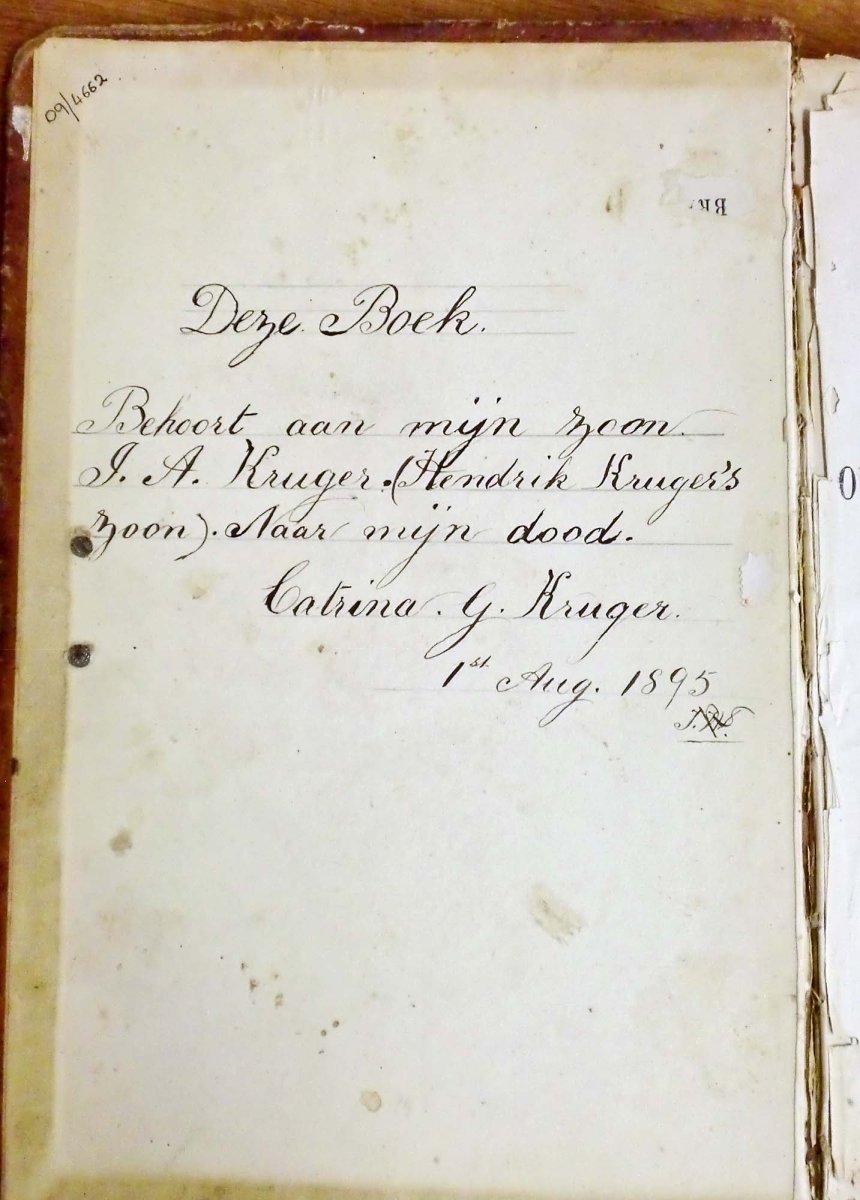 09/4662
Deze Boek.
Behoort aan mijn zoon.
J. A. Kruger. (Hendrik Kruger's
zoon). Naar mijn dood.
Catrina. G. Kruger.
1st Aug. 1895